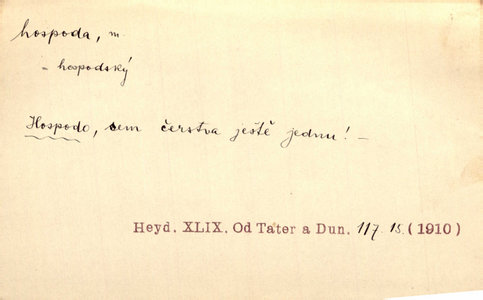 hospoda, m.
- hospodský
Hospodo, sem čerstva ještě jednu! -
Heyd. XLIX. Od Tater a Dun. 117. 15. (1910)